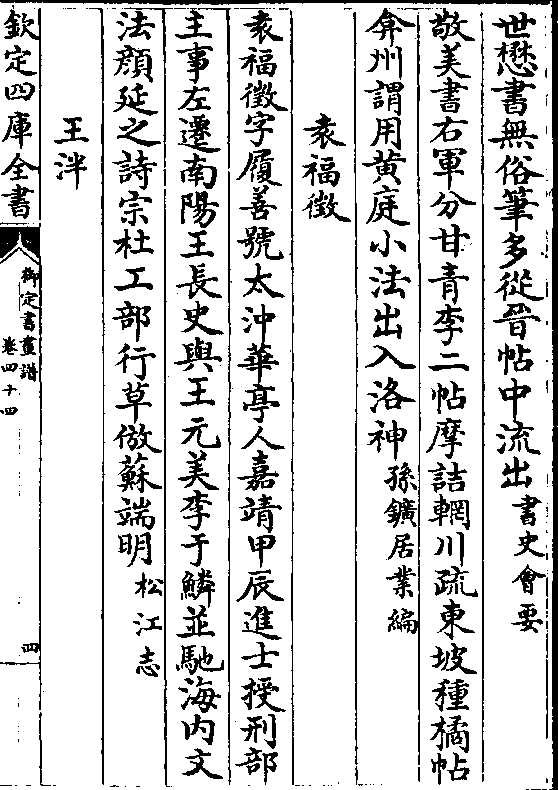 世懋書無俗筆多從晉帖中流出書史會要
敬美書右軍分甘青李二帖摩詰輞川疏東坡種橘帖
弇州謂用黄庭小法出入洛神孫鑛居業編
袁福徵
袁福徵字履善號太沖華亭人嘉靖甲辰進士授刑部
主事左遷南陽王長史與王元美李于鱗並馳海内文
法顔延之詩宗杜工部行草倣蘇端明松江志
王泮
欽定四庫全書
御定書畫譜
卷四十四
四